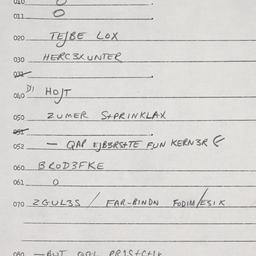 010 O
011 O
020 TEJBE LOX
030 HERC3XUNTER
031
040 HOJT
050 ZUMER SPRINKLAX
051
052 — QAP EJB3RSTE FUN KERN3R
060 BROD3FKE
061 O
070 ZGUL3S / FAR-BINDN FODIM/ESIK
080 — BUT